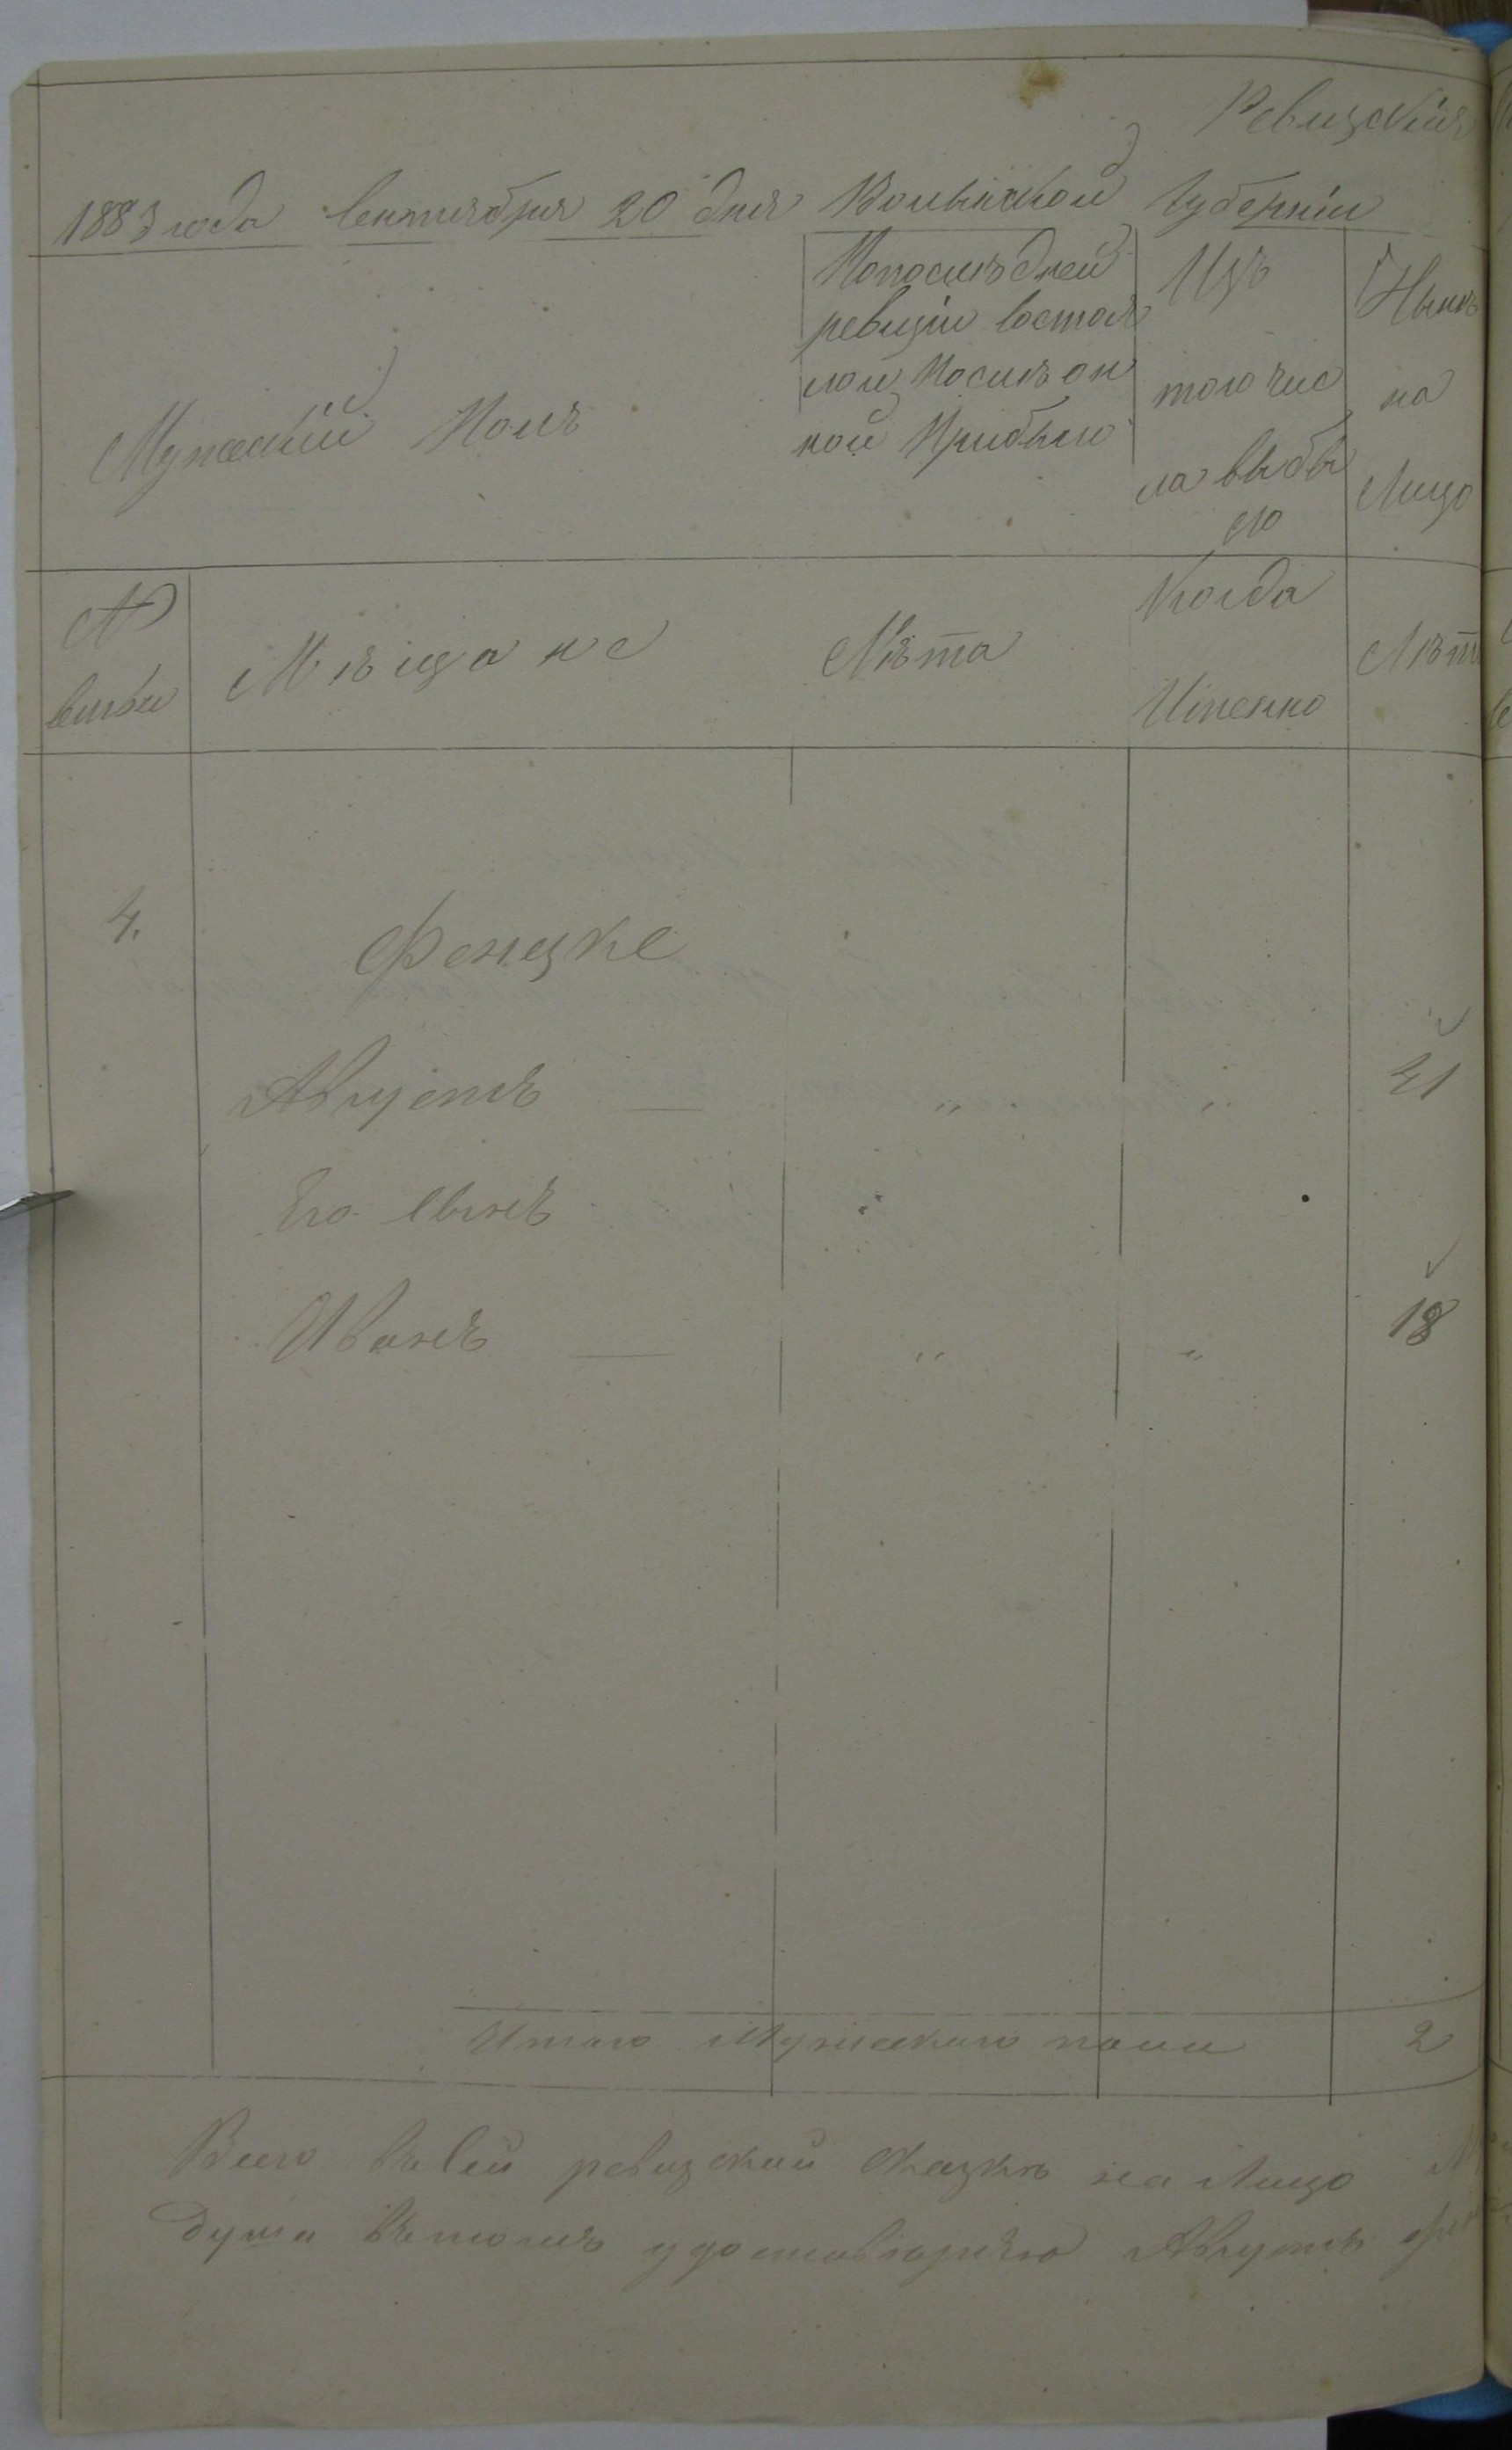 Ревизскія
1883 года Сентября 20 дня Волынской Губерніи
Мужескій Полъ
По последней
ревизіи состоя
ло и, после он
ной Прибыло
Изъ
того чис
ла выбы
ло
Ныне
на
Лицо
№
Семьи
Мѣщане
Лѣта
Когда
Именно
Лѣт
4.
Фенцке
Августъ — " " 41
Его Сынъ "
Иванъ — " " 18
Итого Мужескаго пола 2
Всего въ Сей ревизской Сказкѣ на Лицо
душа въ томъ удостоверяю Августъ